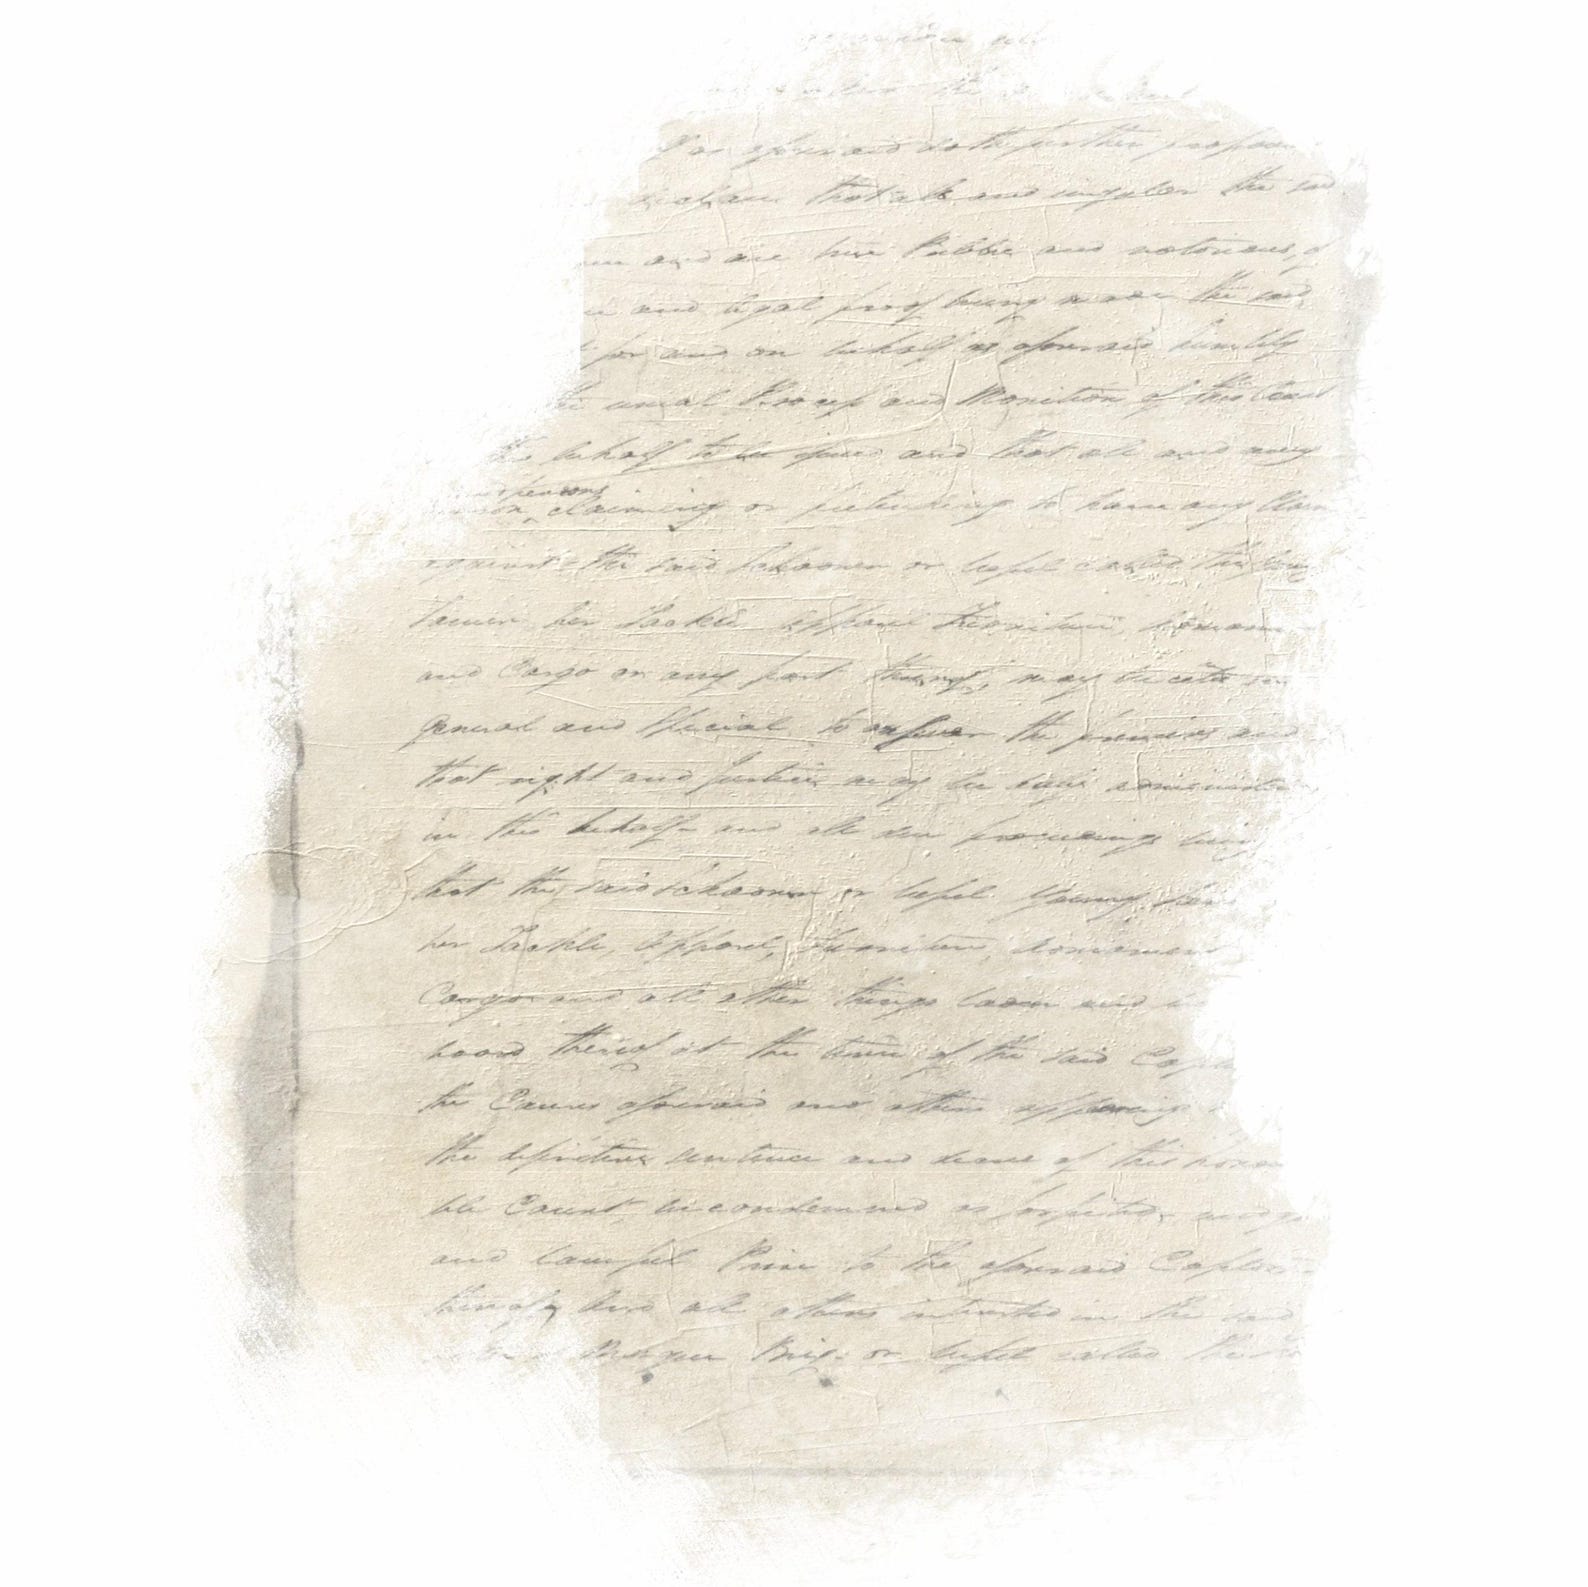 the
as aforesaid doth further propou
that all and singular the said
and are true Public and notorious, of
and legal proof being made the said
for and on behalf as aforesaid humbly
the usual Process and Monition of this Court
behalf to be issued and that all and every
persons
claiming or pretending to have any Claim
against the said Schooner or Vessel called the Young
her Tackle Apparel Furniture,
and Cargo or any part thereof, may be cited in
general and Special to answer the premises and
that right and Justice may be duly administer
in this behalf and all due proceedings being
that the said Schooner or Vessel Young
her Tackle, Apparel, Furniture,
Cargo and all other things laden and
board thereof at the time of the said Cap
the Causes aforesaid and others appearing
the definitive sentence and decree of this Honora
ble Court be condemned as forfeited, and
and lawful Prize to the aforesaid Captors
thereof, and all others interested in the said
Brig or Vessel called the